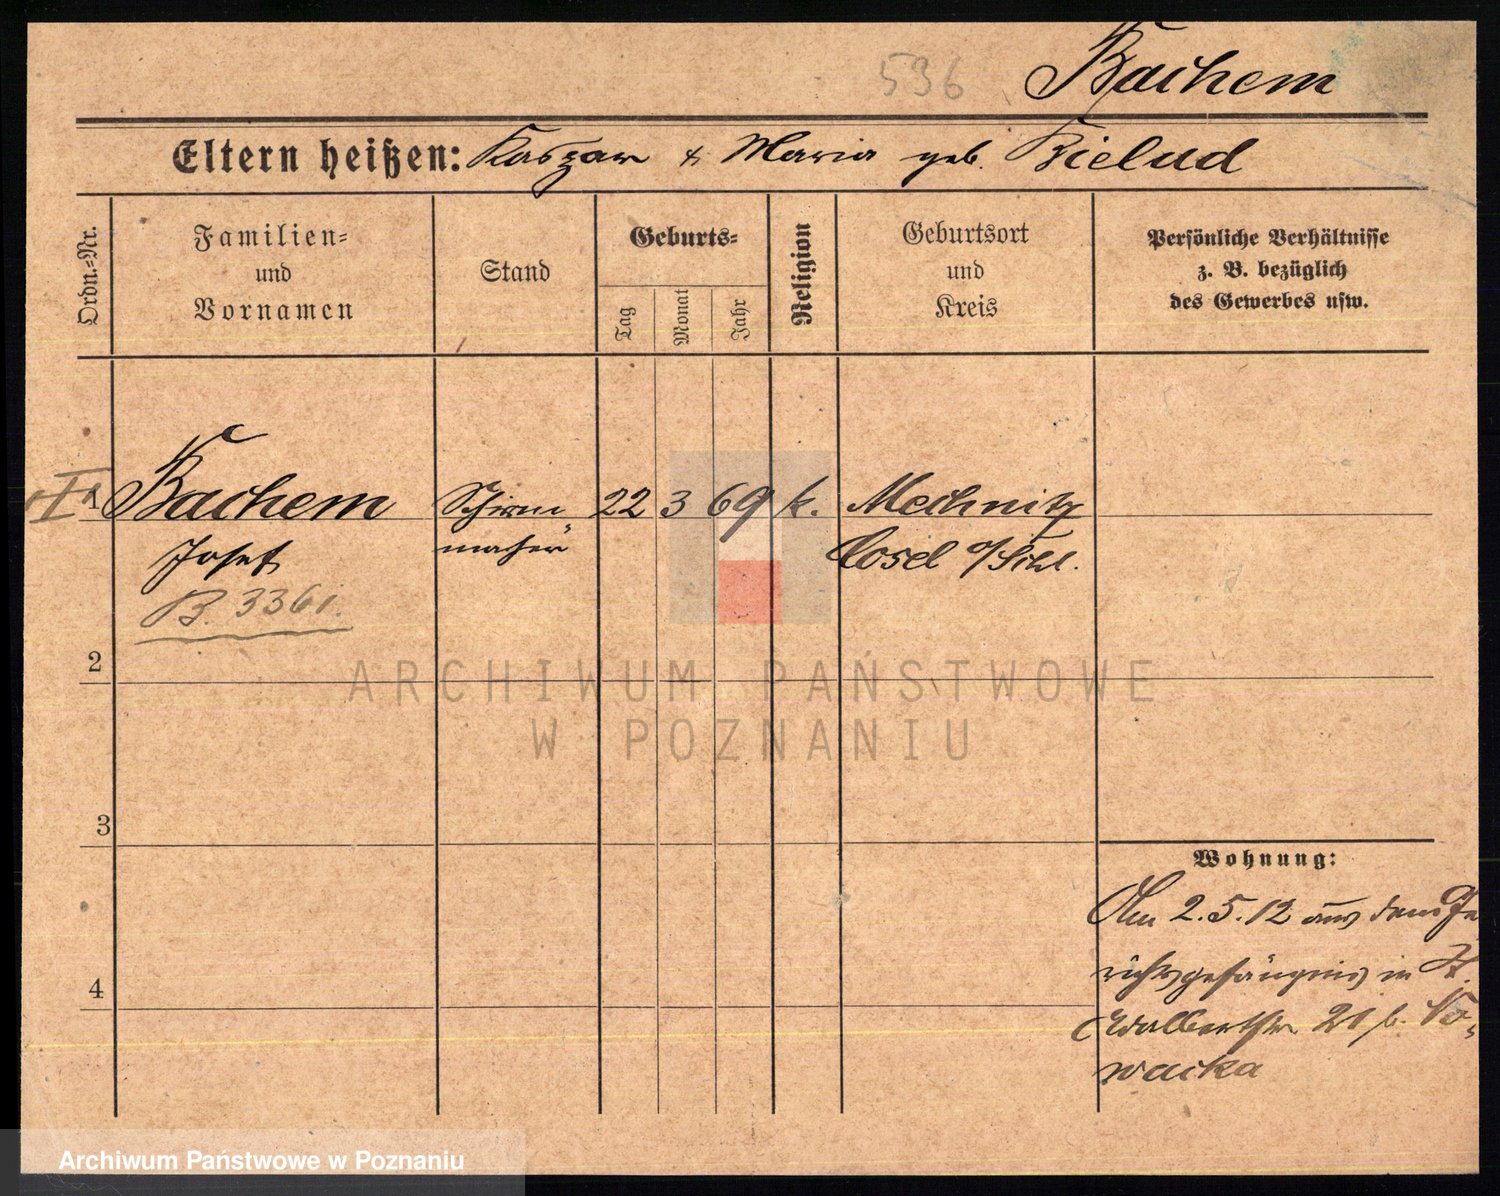 536
Bachem
Eltern heißen: Kaspar & Maria geb. Bielud
Ordn.-Nr.
Familien-
und
Vornamen
Stand
Geburts-
Tag
Monat
Jahr
Religion
Geburtsort
und
Kreis
Persönliche Verhältnisse
z. B. bezüglich
des Gewerbes usw.
I 1 Bachem Schirm 22 3 69 k. Mechnitz
Josef macher Cosel o/Schl.
B. 3361.
2
3
4
Wohnung:
Am 2.5.12 aus dem Ge
richtsgefängnis in St.
Adalbertstr 21 b. No-
wacka
ARCHIWUM PAŃSTWOWE
W POZNANIU
Archiwum Państwowe w Poznaniu